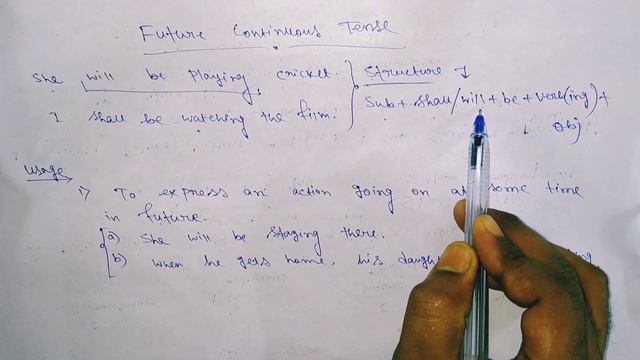 Future Continuous Tense
She will be playing cricket.
I shall be watching the film.
Structure ↓
Sub + shall/will + be + verb(ing) +
Obj
Usage
1) To express an action going on at some time
in future.
a) She will be staging there.
b) when he gets home, his